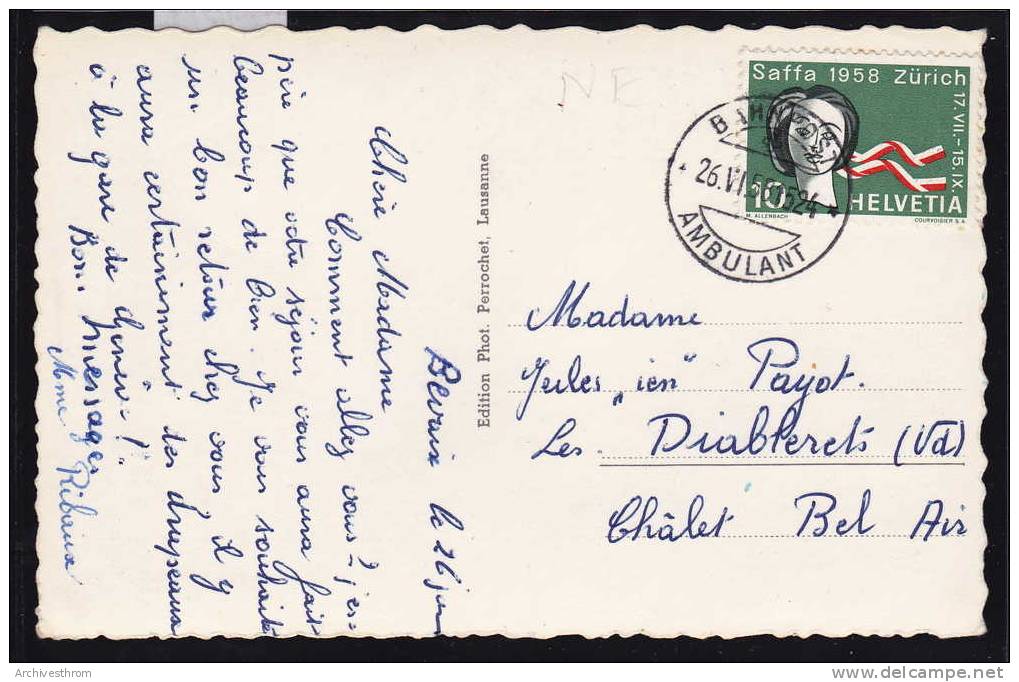 NE
Bevaix le 26 juin
Chère Madame
Comment allez vous? j'es-
père que votre séjour vous aura fait
beaucoup de bien. Je vous souhaite
un bon retour chez vous, il y
aura certainement des drapeaux
à la gare de Genève!
Bons messages
Mme Ribaux
Edition Phot. Perrochet, Lausanne
Saffa 1958 Zürich
17.VII.–15.IX.
10
HELVETIA
M. ALLENBACH
COURVOISIER S.A.
BAHNPOST
26.VI.58 1524
AMBULANT
Madame
Jules „ien" Payot.
Les Diablerets (Vd)
Châlet Bel Air
Archivesthrom
delcampe.net